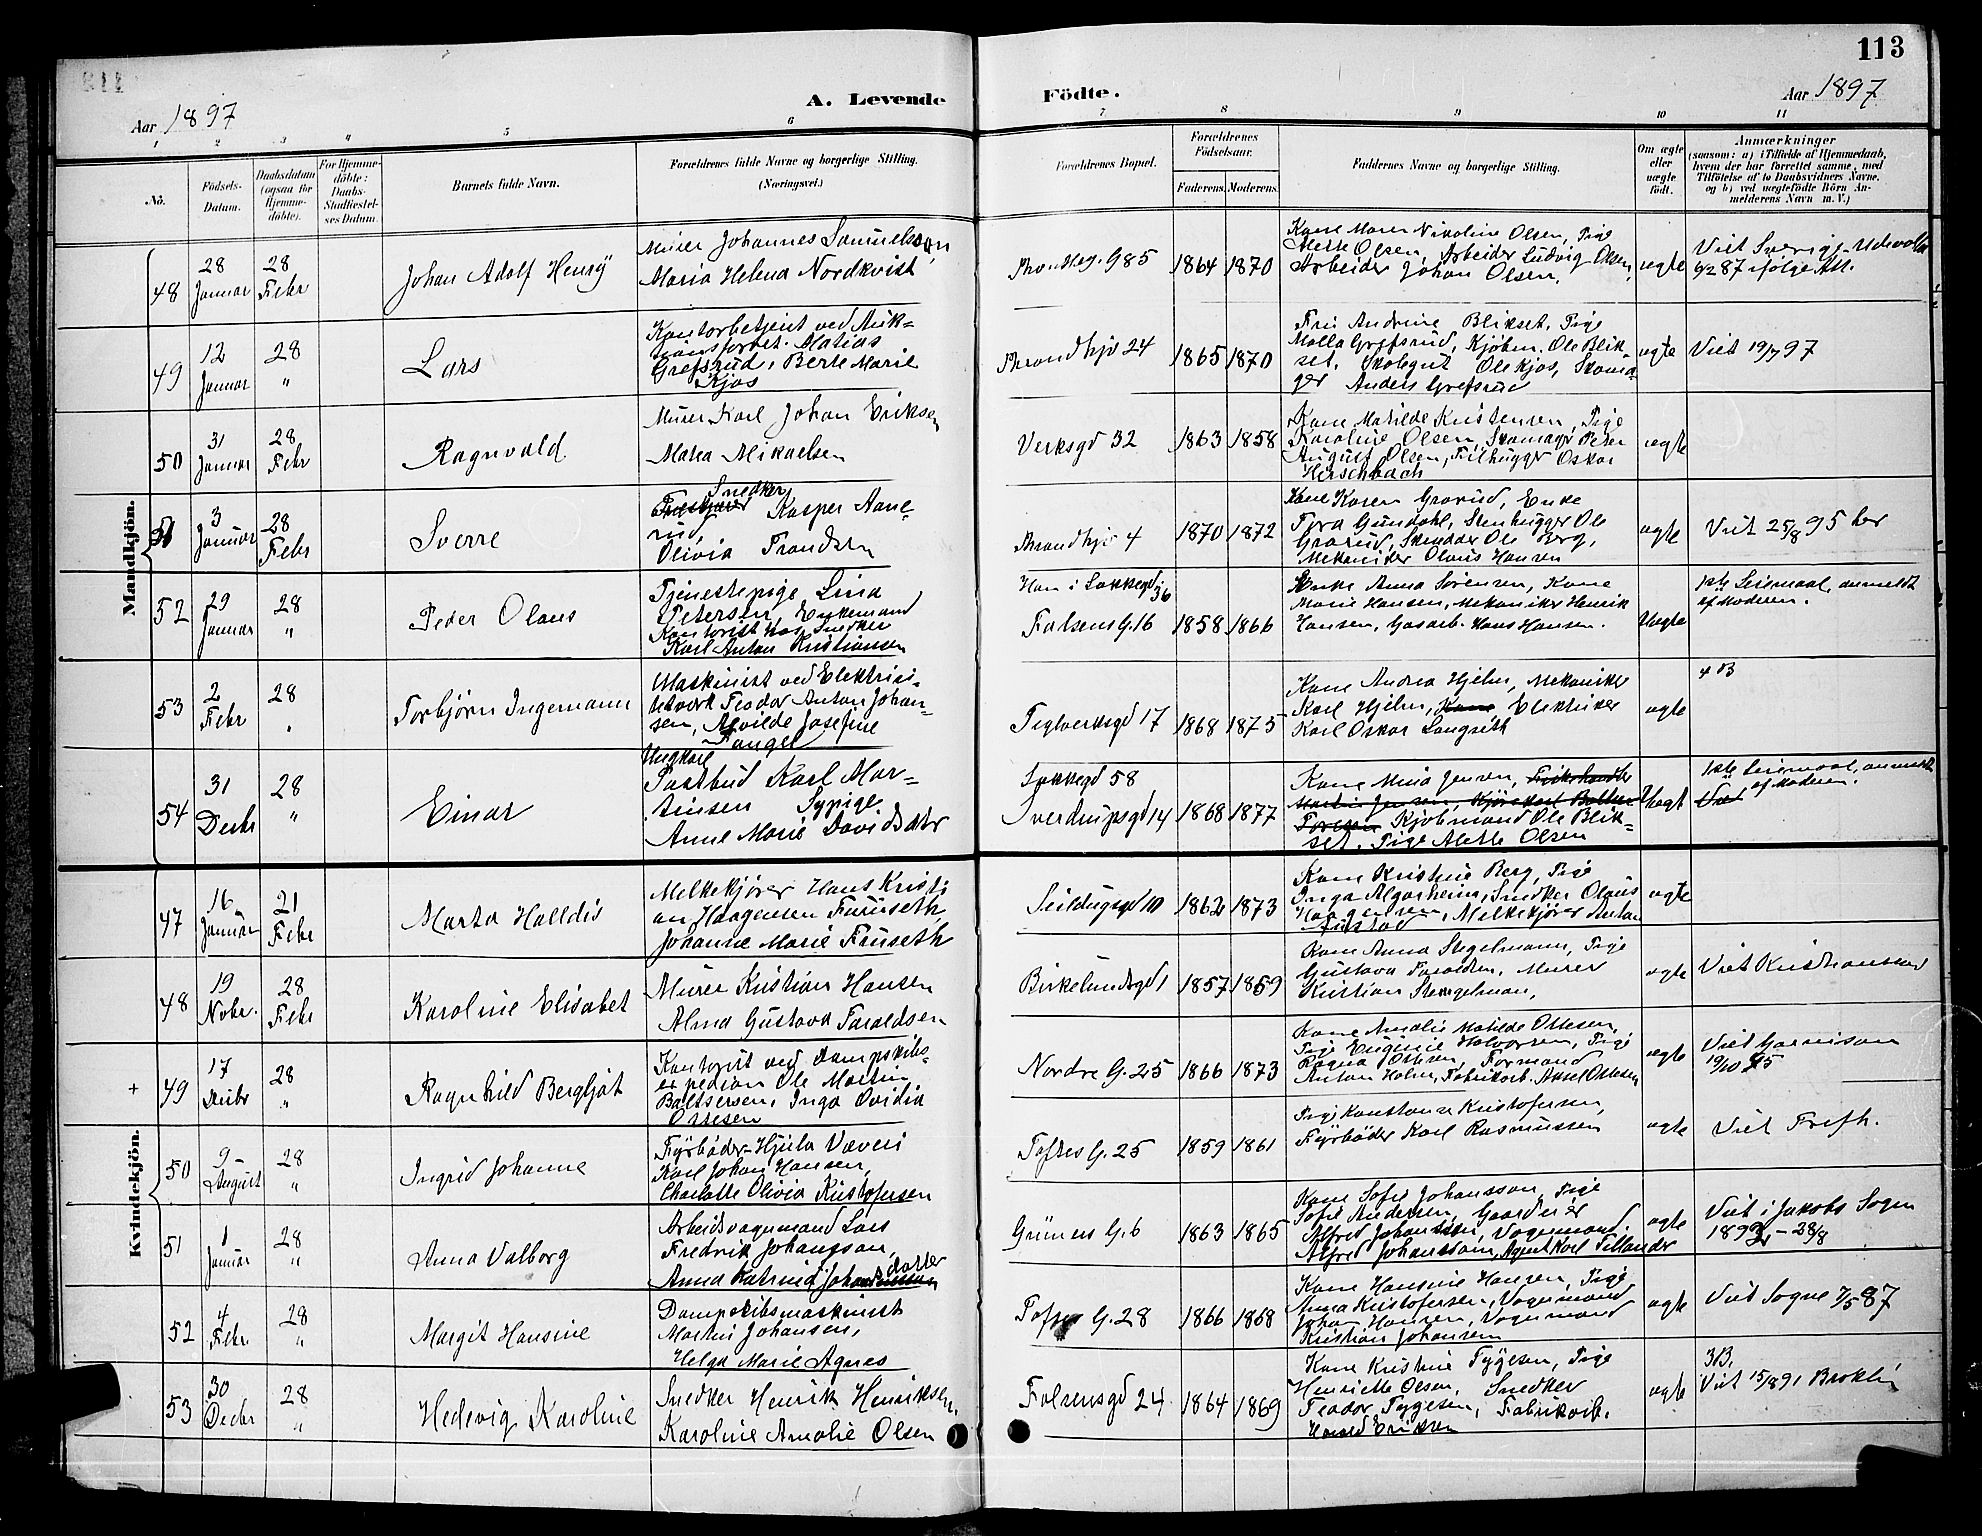 113
Aar 1897
A. Levende
Födte.
Aar 1897
1 2 3 4 5 6 7 8 9 10 11
No.
Födsels-Datum.
Daabsdatum (ogsaa for Hjemme-döbte).
For Hjemme-döbte: Daabs-Stadfæstel-ses Datum.
Barnets fulde Navn.
Forældrenes fulde Navne og borgerlige Stilling.
(Næringsvei.)
Forældrenes Bopæl.
Forældrenes Födselsaar.
Faderens. Moderens.
Faddernes Navne og borgerlige Stilling.
Om ægte eller uægte födt.
Anmærkninger
(saasom: a) i Tilfælde af Hjemmedaab,
hvem der har forrettet samme, med
Tilföielse af to Daabsvidners Navne,
og b) ved uægtefödte Börn An-
melderens Navn m. V.)
Mandkjön.
48
28 Januar
28 Febr
Johan Adolf Henry
Murer Johannes Samuelsson,
Maria Helena Nordkvist
Trondhg. G 85
1864 1870
Kone Maren Nikoline Olsen, Pige
Mette Olsen, Arbeider Ludvig Olsen,
Arbeider Johan Olsen.
ægte
Viet Sverige Udevalla
6/2 87 ifølge Att.
49
12 Januar
28 "
Lars
Kontorbetjent ved Auk-
tionsforret. Matias
Grefsrud, Berte Marie
Kjos
Trondhjv 24
1865 1870
Fru Andrine Blikset, Pige
Molla Grefsrud, Kjøbm. Ole Blik-
set, Skolegut Ole Kjos, Skoma-
ger Anders Grefsrud
ægte
Viet 19/7 97
50
31 Januar
28 Febr
Ragnvald
Murer Karl Johan Eriksen
Matea Mikaelsen
Verksgd 32
1863 1858
Kone Matilde Kristensen, Pige
Karoline Olsen, Skomager Peter
August Olsen, Filhugger Oskar
Herschbach
ægte
51
3 Januar
28 Febr
Sverre
Snedker
Kasper Aane-
rud,
Olivia Frandsen
Trondhjv 4
1870 1872
Kone Karen Grorud, Enke
Tora Gundahl, Stenhugger Ole
Grorud, Skrædder Ole Berg,
Mekaniker Olaus Hansen
ægte
Viet 25/8 95 her
52
29 Januar
28 "
Peder Olaus
Tjenestepige Lina
Petersen, Enkemand
Snedker
Karl Anton Kristiansen
Han i Sakkegd 36
Falsens G. 16
1858 1866
Enke Anna Sørensen, Kone
Marie Hansen, Mekaniker Henrik
Hansen, Gasarb. Hans Hansen.
Uægte
1ste Leiermaal, anmeldt
af Moderen.
53
2 Febr
28 "
Torbjørn Ingemann
Maskinist ved Elektrisi-
tetverk Teodor Anton Johan-
sen, Alvilde Josefine
Fangel
Teglverksgd 17
1868 1875
Kone Andrea Hjelm, Mekaniker
Karl Hjelm, Kone Elektriker
Karl Oskar Langseth
ægte
4 B
54
31 Decbr
28 "
Einar
Ungkarl
Postbud Karl Mar-
tinsen Sypige
Anne Marie Davidsdtr
Sakkegd 58
Sverdrupsgd 14
1868 1877
Kone Mina Jensen, Fiskehandler
Martin Jensen, Kjørekarl
Kjøbmand Ole Blik-
set, Pige Alette Olsen
Uægt
1ste Leiermaal, anmeldt
af Moderen.
Viet
Kvindekjön.
47
16 Januar
21 Febr
Marta Halldis
Melkekjører Hans Kristi
an Haagensen Furuseth
Johanne Marie Fruseth
Seildugsgd 10
1862 1873
Kone Kristine Berg, Pige
Inga Algarheim, Snedker Olaus
Haagensen, Melkekjører Anton
Austad
ægte
48
19 Nobr.
28 Febr
Karoline Elisabet
Murer Kristian Hansen
Alma Gustava Taraldsen
Birkelundsgd 1
1857 1859
Kone Anna Stegelmann, Pige
Gustava Taraldsen, Murer
Kristian Stengelman,
ægte
Viet Kristianssand
+
49
17 Decbr
28 "
Ragnhild Bergljot
Kontorist ved Dampskibs-
expedition Ole Martin
Baltsersen, Inga Ovidia
Ottesen
Nordre G. 25
1866 1873
Kone Amalie Matilde Ottesen,
Pige Eugenie Halvorsen, Pige
Ragna Ottesen, Formand
Anton Holm, Fabrikarb. Aksel Ottesen
ægte
Viet Garnison
19/10 95
50
9 August
28 "
Ingrid Johanne
Fyrbøder Hjula Væveri
Karl Johan Hansen,
Charlotte Olivia Kristofersen
Toftes G. 25
1859 1861
Pige Konstanse Kristofersen,
Fyrbøder Karl Rasmussen
ægte
Viet Trefh.
51
1 Januar
28 "
Anna Valborg
Arbeidsvognmand Lars
Fredrik Johansson,
Anna Katrina Johansdatter
Grüners G. 6
1863 1865
Kone Sofie Johansson, Pige
Sofie Andersen, Gaardeier
Alfred Johansson, Vognmand
Alfred Johansson, Agent Karl Tillander
ægte
Viet i Jakobs Sogn
1892 - 28/8
52
4 Febr
28 "
Margit Hansine
Dampskibsmaskinist
Martin Johansen,
Helga Marie Agnes
Toftes G. 28
1866 1868
Kone Hansine Hansen, Pige
Anna Kristofersen, Vognmand
Johan Hansen, Vognmand
Kristian Johansen
ægte
Viet Sogne 7/5 87
53
30 Decbr
28 "
Hedevig Karoline
Snedker Henrik Henriksen,
Karoline Amalie Olsen
Falsensgd 24
1864 1869
Kone Kristine Tygesen, Pige
Henriette Olsen, Snedker
Teodor Tygesen, Fabrikarb.
Harald Eriksen
ægte
3B.
Viet 15/8 91 Broklin